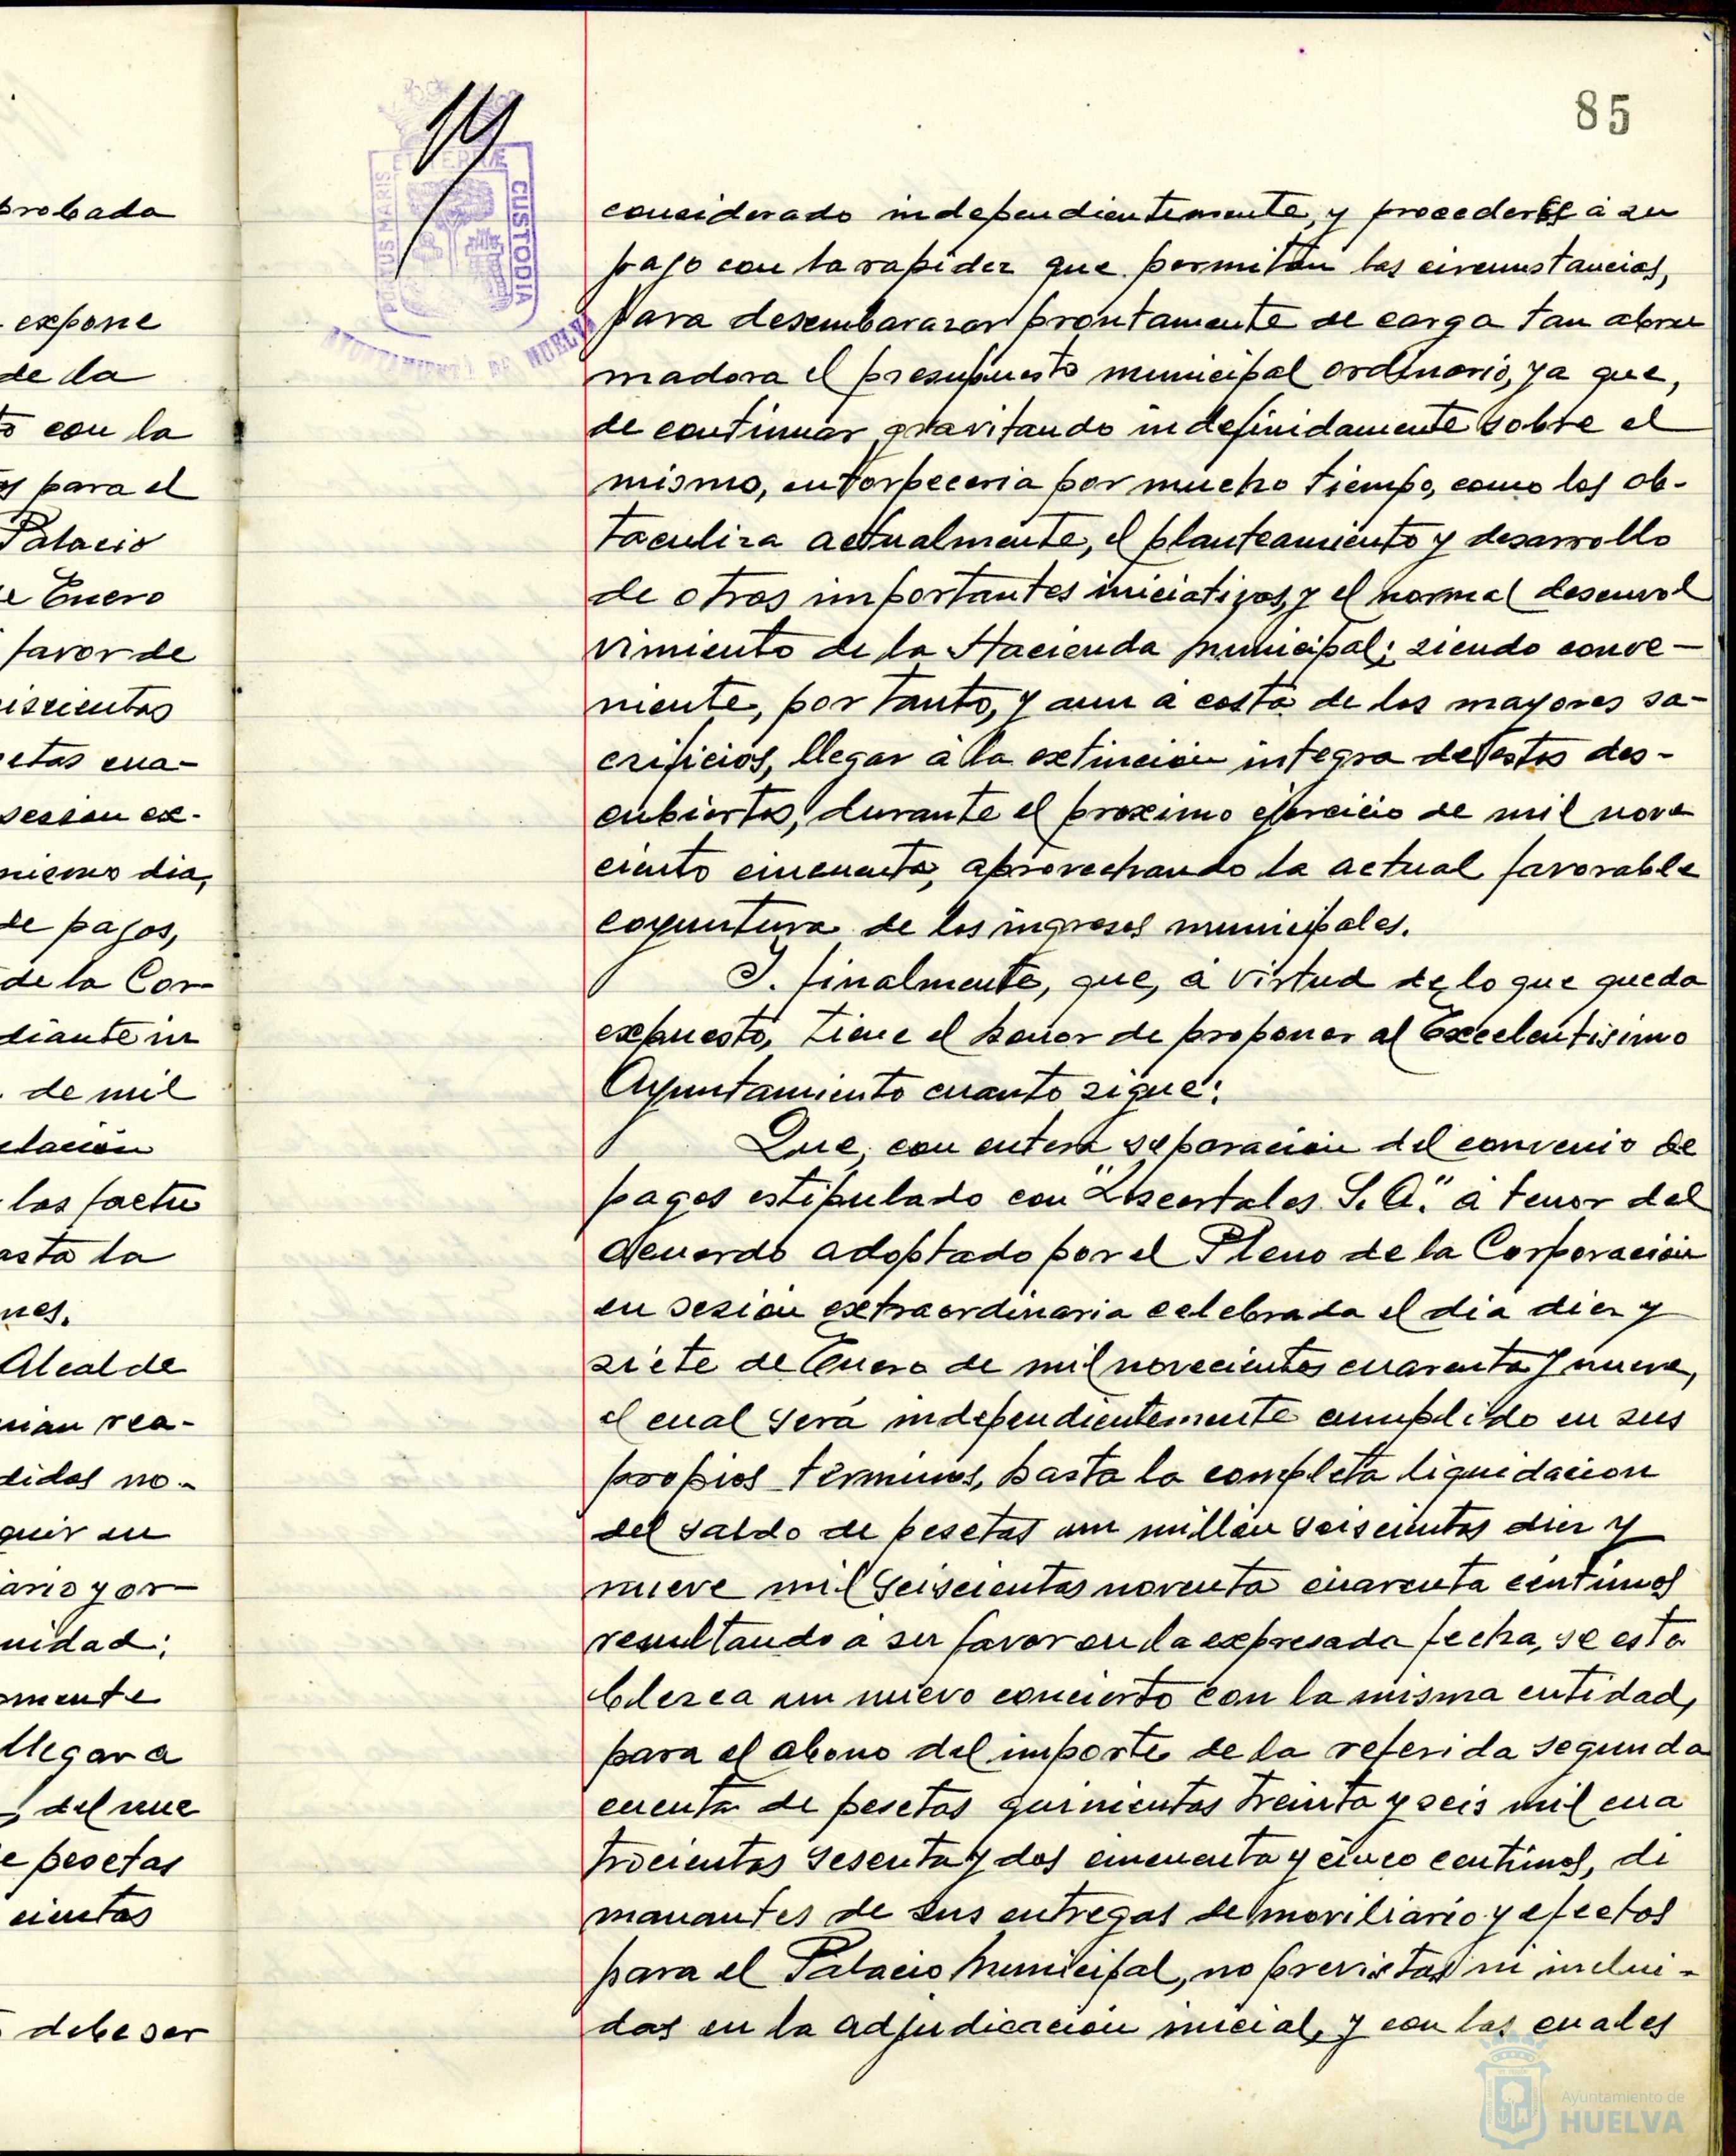 probada
expone
de la
con la
para el
Palacio
Enero
favor de
iscientos
etas cua-
sesion ex-
mismo dia,
de pagos,
de la Cor-
diante in
de mil
elación
las factu
asta la
nes.
Alcalde
nian rea-
didas no-
quir su
ario y or-
nidad;
mente
llegar a
del nue
e pesetas
cientos
debe ser
85
PORTUS MARIS ET TERRÆ CUSTODIA
AYUNTAMIENTO DE HUELVA
considerado independientemente, y procederse á su
pago con la rapidez que permitan las circunstancias,
para desembarazar prontamente de carga tan abru
madora el presupuesto municipal ordinario, ya que,
de continuar gravitando indefinidamente sobre el
mismo, entorpeceria por mucho tiempo, como los ob-
taculiza actualmente, el planteamiento y desarrollo
de otras importantes iniciativas, y el normal desenvol
vimiento de la Hacienda municipal; siendo conve-
niente, por tanto, y aun á costa de los mayores sa-
crificios, llegar á la extinción integra de estos des-
cubiertos, durante el proximo ejercicio de mil nove
ciento cincuenta, aprovechando la actual favorable
coyuntura de los ingresos municipales.
Y. finalmente, que, á virtud de lo que queda
expuesto, tiene el honor de proponer al Excelentisimo
Ayuntamiento cuanto sigue:
Que, con entera separación del convenio de
pagos estipulado con "Loscertales S. A." á tenor del
acuerdo adoptado por el Pleno de la Corporación
en sesión extraordinaria celebrada el dia diez y
siete de Enero de mil novecientos cuarenta y nueve,
el cual será independientemente cumplido en sus
propios términos, hasta la completa liquidacion
del saldo de pesetas un millón seiscientas diez y
nueve mil seiscientas noventa cuarenta centimos
resultando á su favor en la expresada fecha, se esta
blezca un nuevo concierto con la misma entidad,
para el abono del importe de la referida segunda
cuenta de pesetas quinientas treinta y seis mil cua
trocientas sesenta y dos cincuenta y cinco centimos, di
manantes de sus entregas de moviliario y efectos
para el Palacio Municipal, no previstas ni inclui-
das en la adjudicación inicial, y con las cuales
Ayuntamiento de
HUELVA